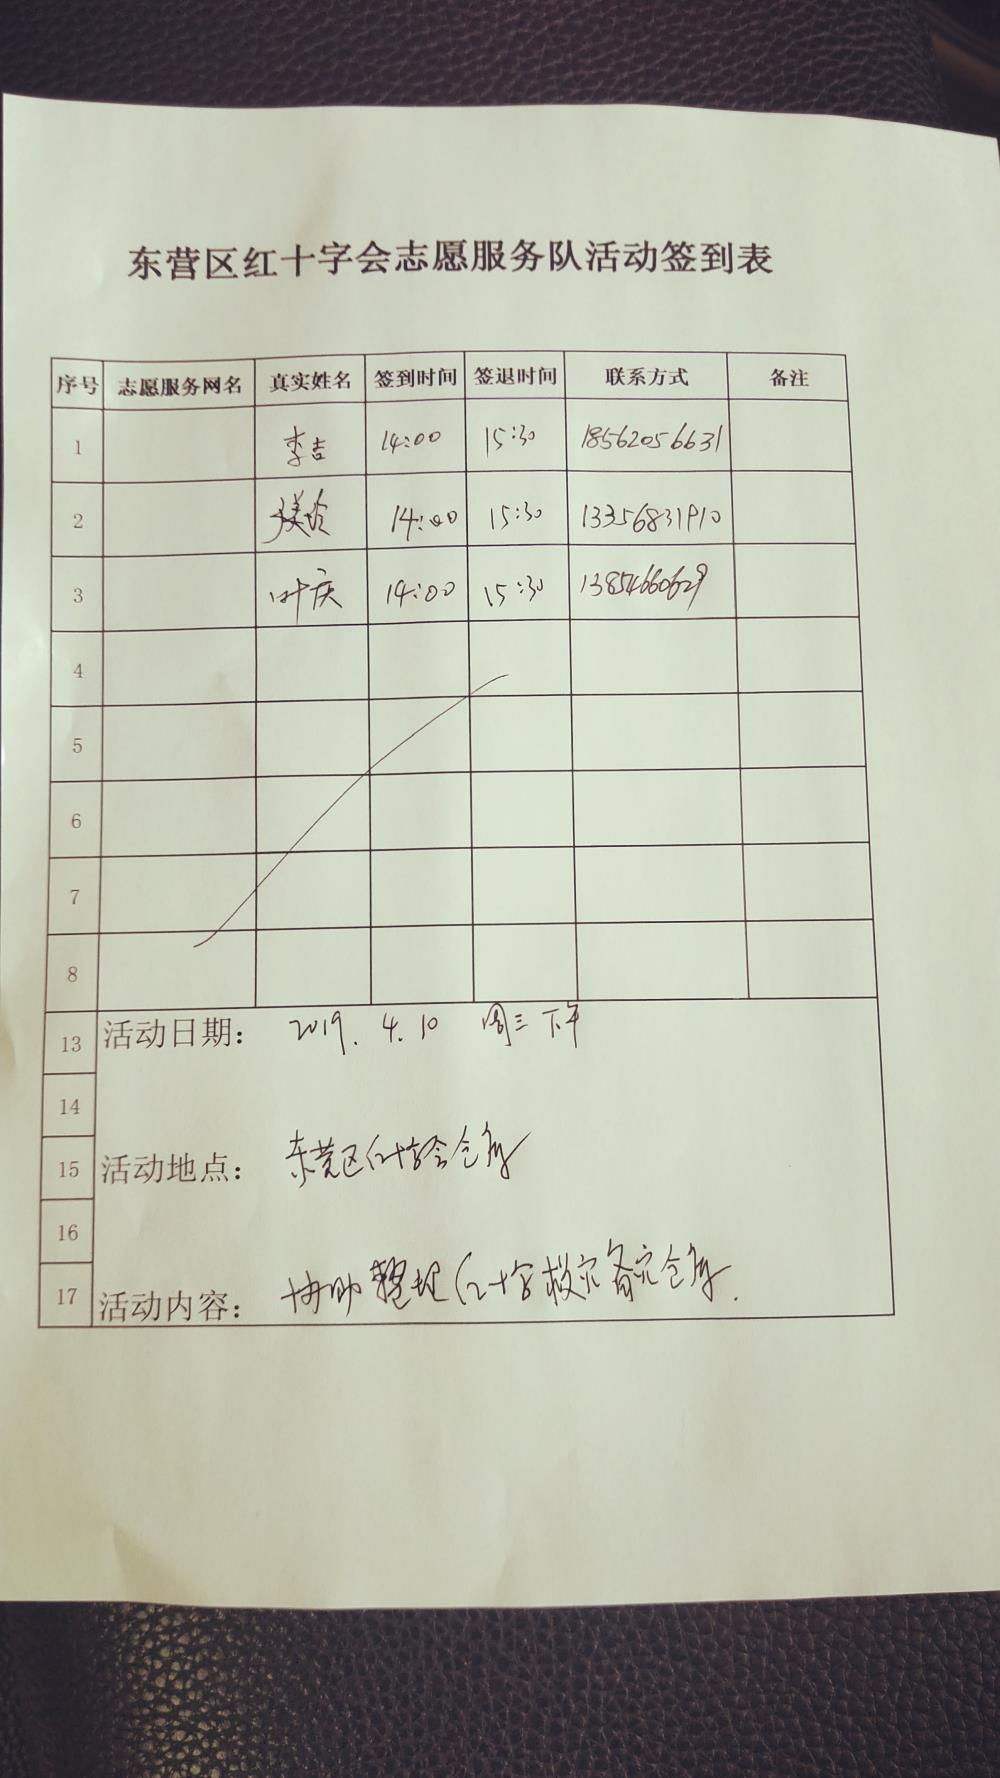 东营区红十字会志愿服务队活动签到表
序号 志愿服务网名 真实姓名 签到时间 签退时间 联系方式 备注
1 李吉 14:00 15:30 18562056631
2 14:00 15:30 13356831910
3 叶庆 14:00 15:30 13854660629
4
5
6
7
8
13 活动日期： 2019.4.10 周三下午
14
15 活动地点： 东营区红十字会仓库
16
17 活动内容： 协助整理红十字救灾备灾仓库.